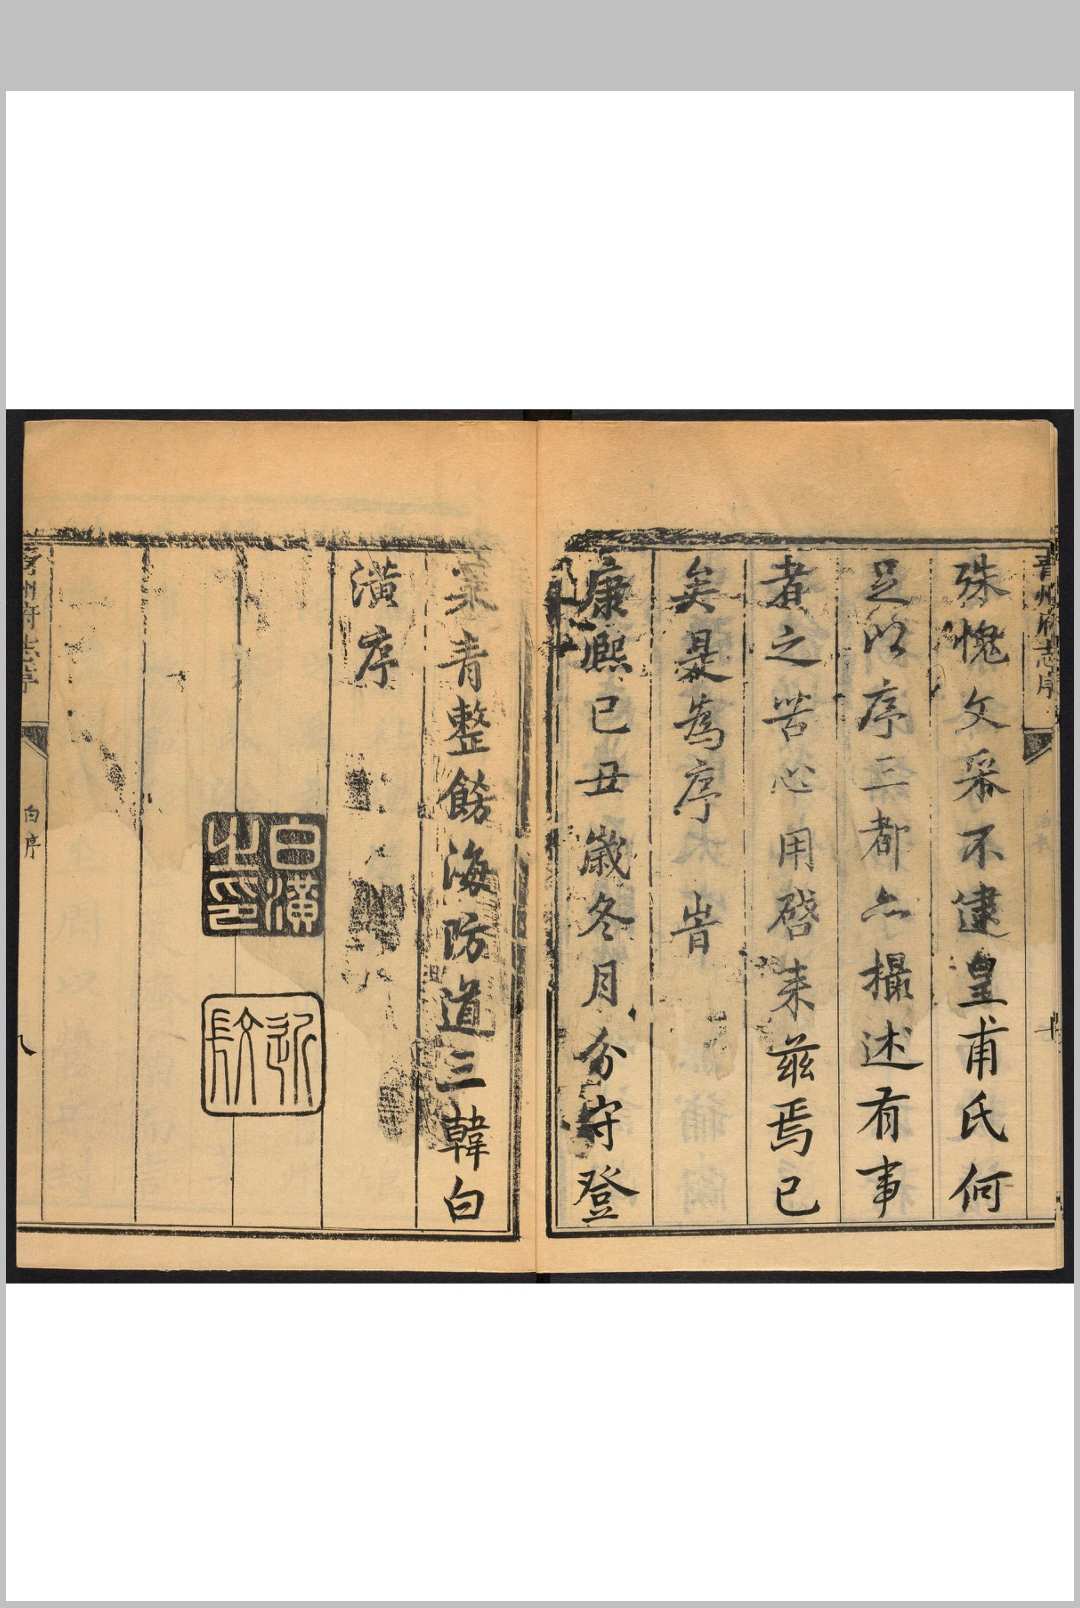 青州府志序
殊愧文采不逮皇甫氏何
足以序三都亦撮述有事
者之苦心用啓来兹焉已
矣是爲序 旹
康熙己丑歲冬月分守登
萊青整飭海防道三韓白
潢序
白潢之印
青州府志序
白序
九